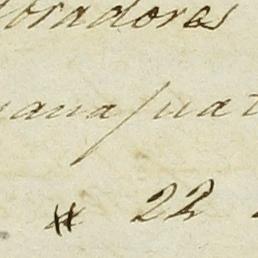 bradores
anajuat
# 22